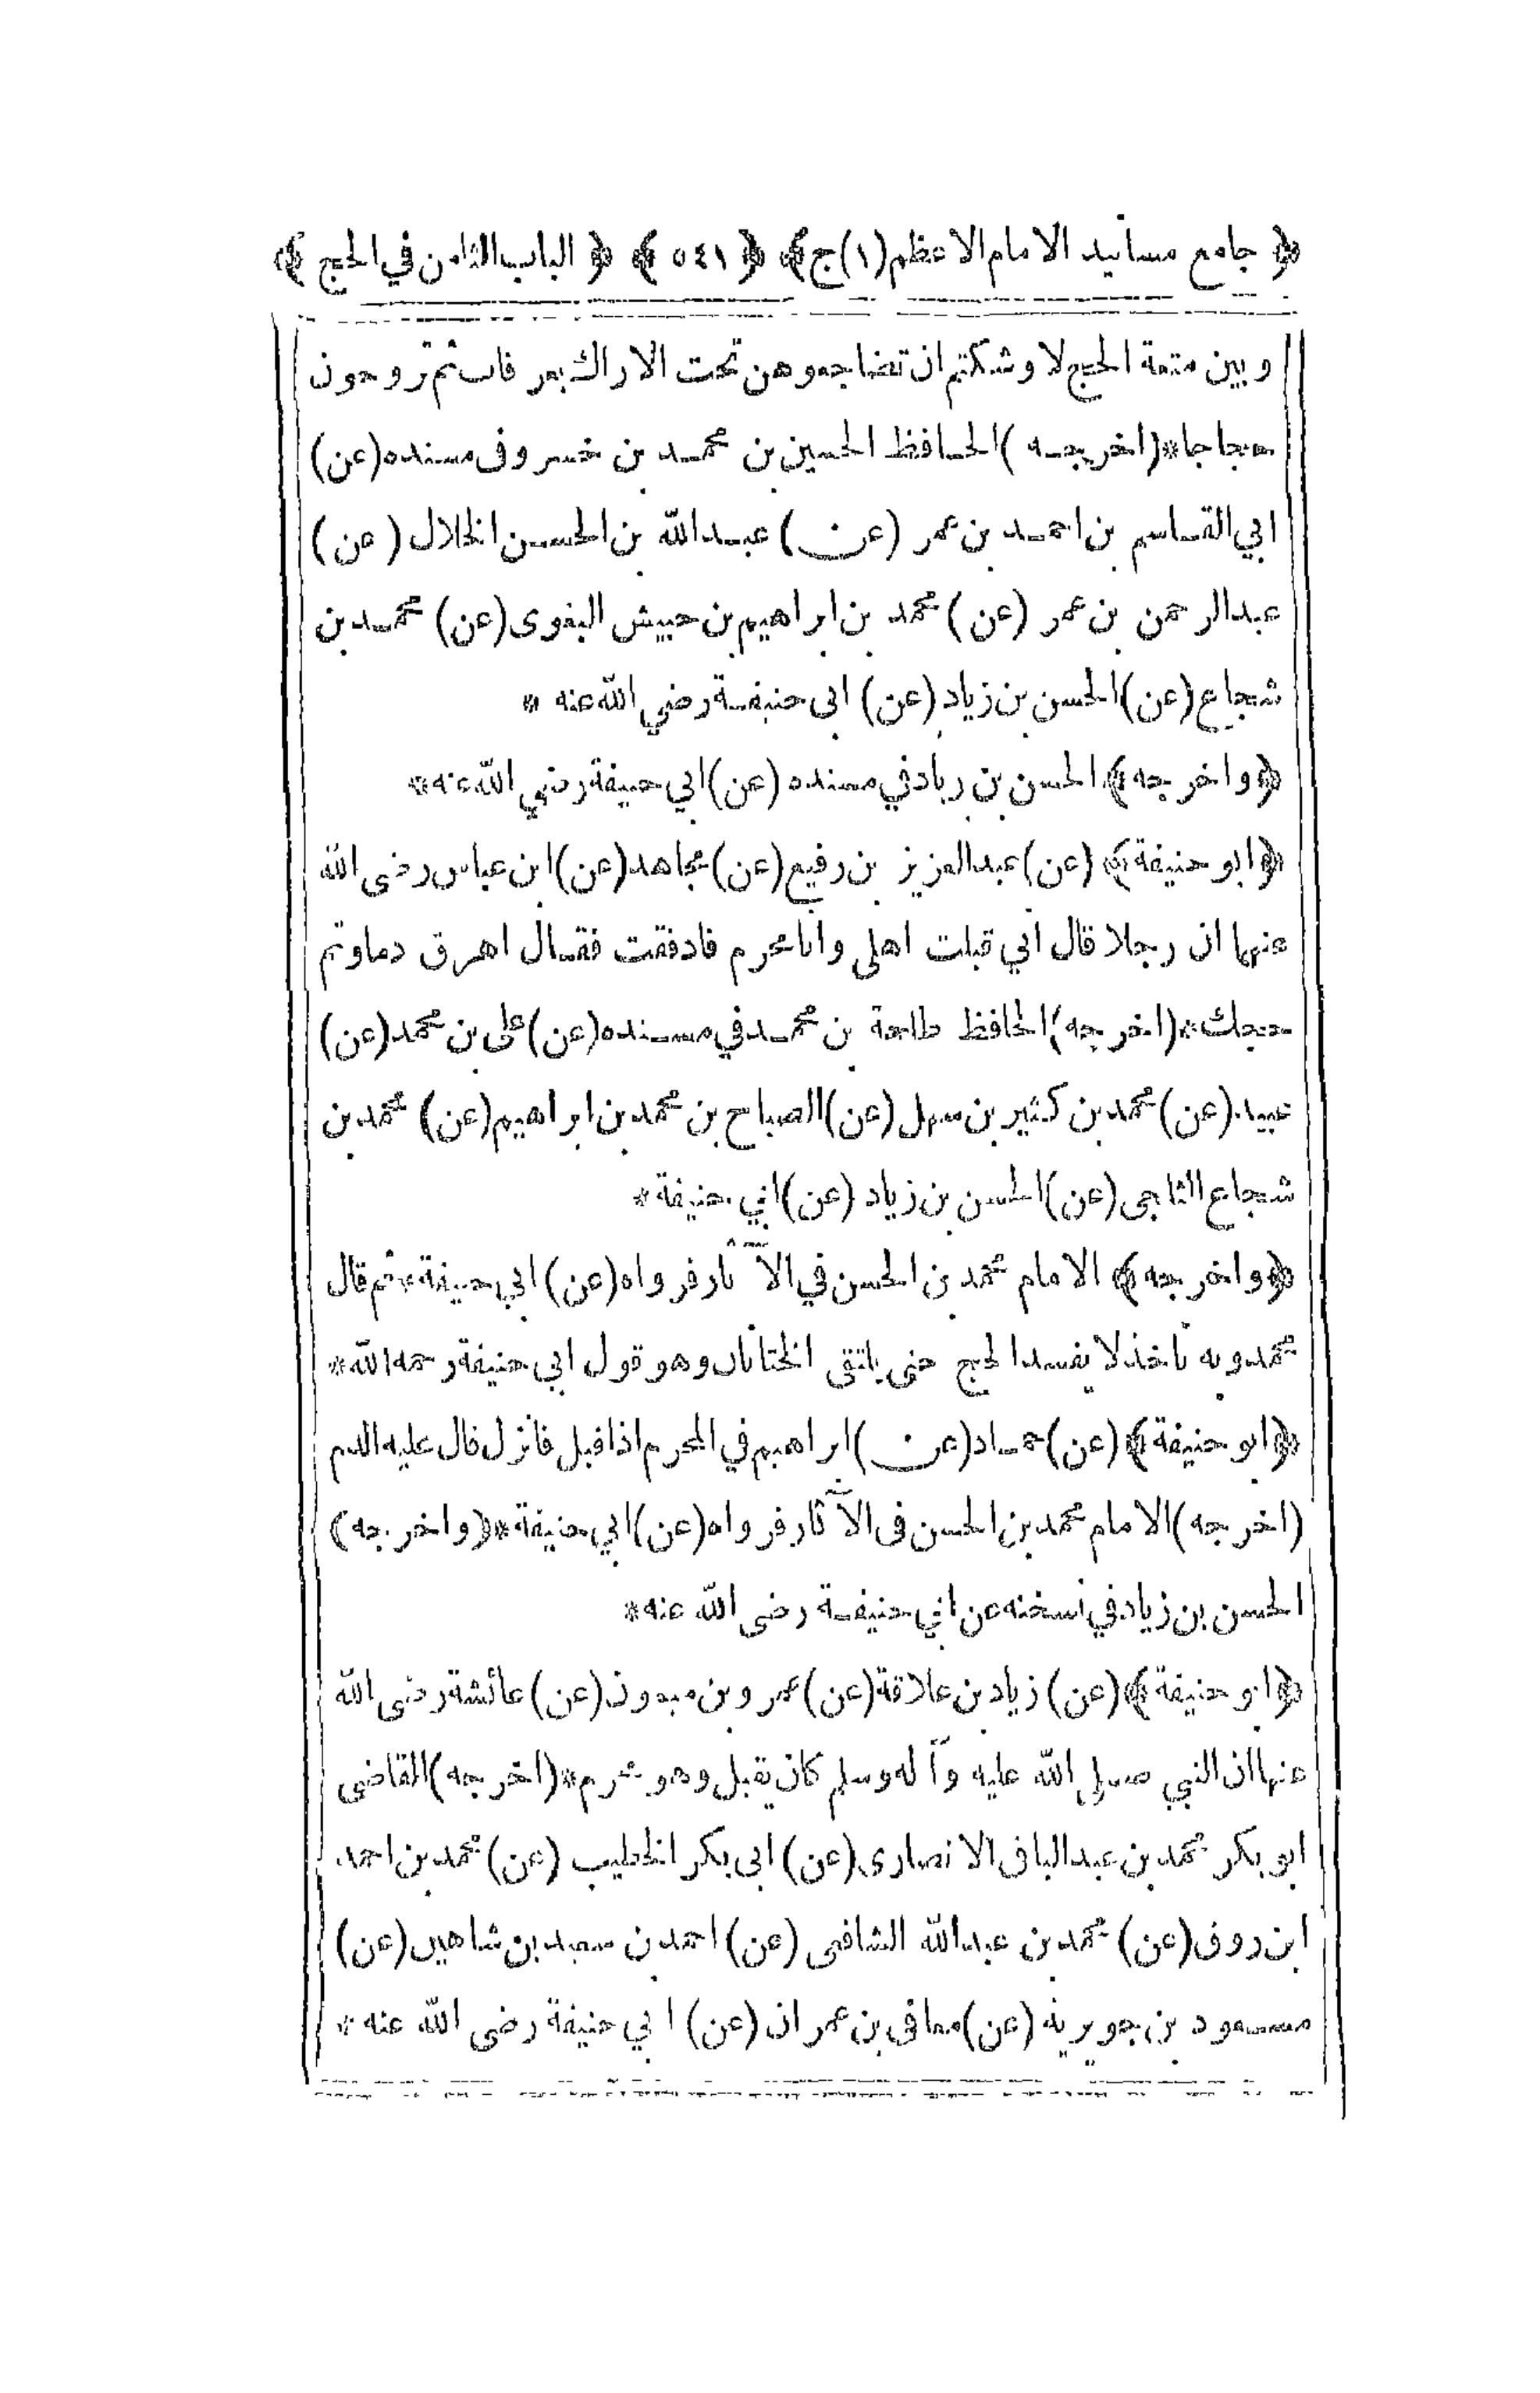 ﴿ جامع مسانيد الامام الاعظم(١)ج﴾ ﴿ ٥٤١ ﴾ ﴿ الباب الثامن في الحج ﴾
وبين متعة الحج لاوشكتم ان تضاجعوهن تحت الاراك بعرفات ثم تروحون
حجاجا*(اخرجه)الحافظ الحسين بن محمد بن خسروفى مسنده(عن)
ابي القاسم بن احمد بن عمر (عن) عبدالله بن الحسن الخلال (عن)
عبدالرحمن بن عمر (عن) محمد بن ابراهيم بن حبيش البغوى(عن) محمد بن
شجاع(عن)الحسن بن زياد(عن) ابى حنيفة رضي الله عنه *
﴿واخرجه﴾ الحسن بن زياد في مسنده (عن)ابي حنيفة رضي الله عنه*
﴿ابوحنيفة﴾ (عن)عبدالعزيز بن رفيع(عن)مجاهد(عن)ابن عباس رضى الله
عنهما ان رجلا قال اني قبلت اهلى وانامحرم فادفقت فقال اهرق دماوتم
حجك*(اخرجه)الحافظ طلحة بن محمد في مسنده(عن)على بن محمد(عن)
عبيد(عن)محمد بن كثير بن سهل(عن)الصباح بن محمد بن ابراهيم(عن) محمد بن
شجاع الثلجى(عن)الحسن بن زياد (عن)ابي حنيفة*
﴿واخرجه﴾ الامام محمد بن الحسن في الآثار فرواه(عن) ابي حنيفة*ثم قال
محمدوبه ناخذلا يفسدالحج حتى يلتقى الختانان وهو قول ابي حنيفة رحمه الله*
﴿ابوحنيفة﴾(عن)حماد(عن)ابراهيم في المحرم اذا قبل فانزل قال عليه الدم
(اخرجه)الامام محمد بن الحسن فى الآثار فرواه(عن)ابي حنيفة*(واخرجه)
الحسن بن زياد في نسخته عن ابي حنيفة رضى الله عنه*
﴿ابوحنيفة﴾(عن) زياد بن علاقة(عن)عمروبن ميمون(عن)عائشة رضى الله
عنهاان النبي صلى الله عليه وآله وسلم كان يقبل وهو محرم*(اخرجه)القاضى
ابوبكر محمد بن عبدالباقى الانصارى(عن)ابى بكر الخطيب (عن)محمد بن احمد
ابن روق(عن) محمد بن عبدالله الشافعى (عن) احمد بن سعيد بن شاهين(عن)
مسعود بن جويرية (عن)معافى بن عمران (عن) ابي حنيفة رضى الله عنه *